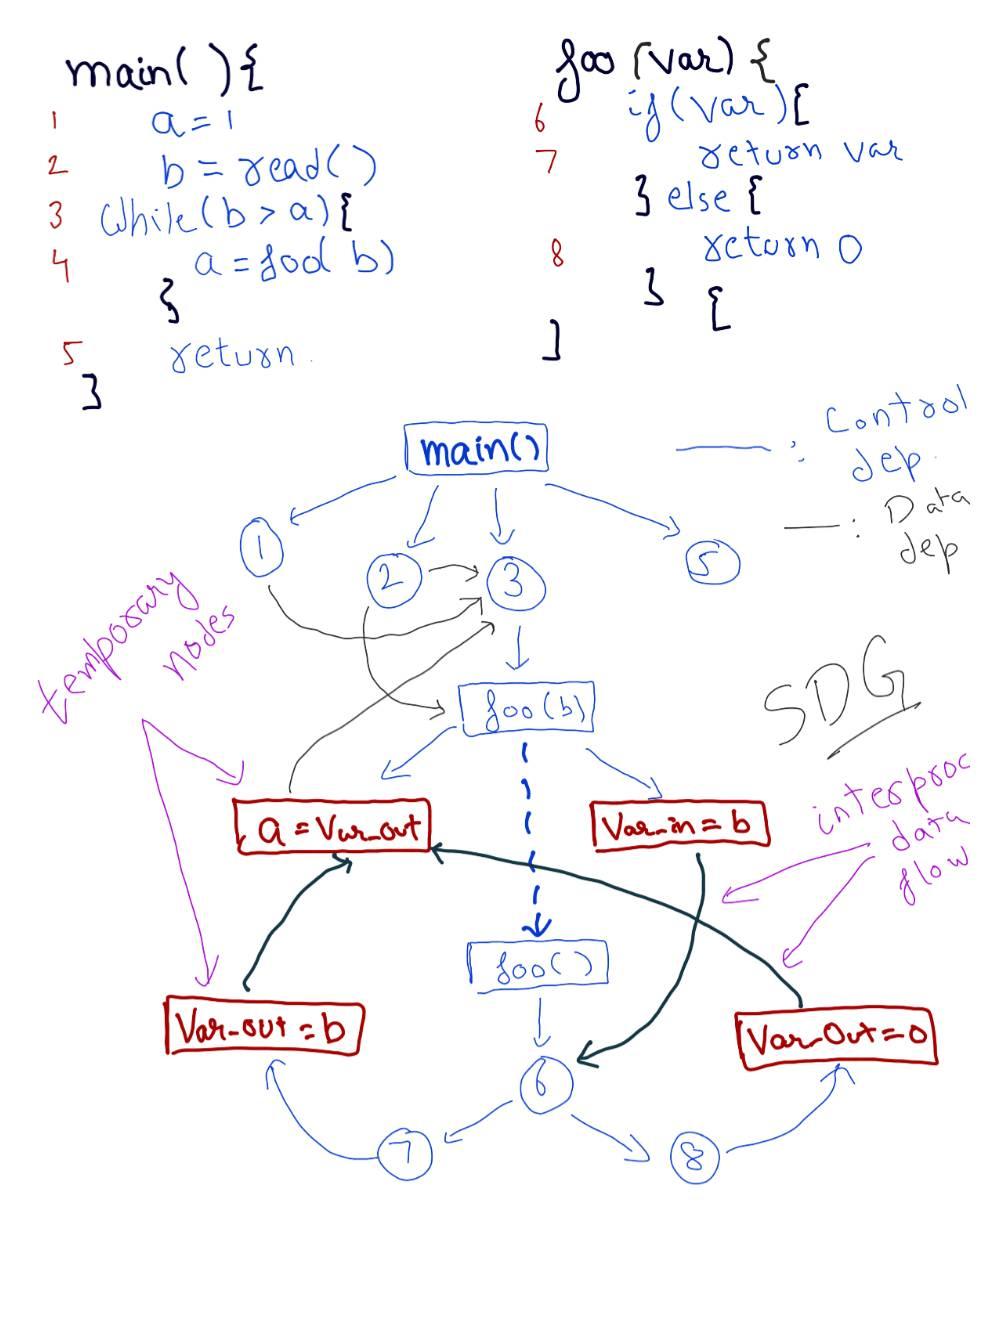 main( ){
1 a = 1
2 b = read()
3 while(b > a){
4 a = foo( b)
}
5 return.
}
foo (var) {
6 if(var){
7 return var
} else {
8 return 0
} {
]
main()
1
2
3
5
— : Control
dep.
— : Data
dep
temporary
nodes
foo(b)
SDG
a = Var_out
Var_in = b
interproc
data
flow
foo()
Var-out = b
Var_Out=0
6
7
8